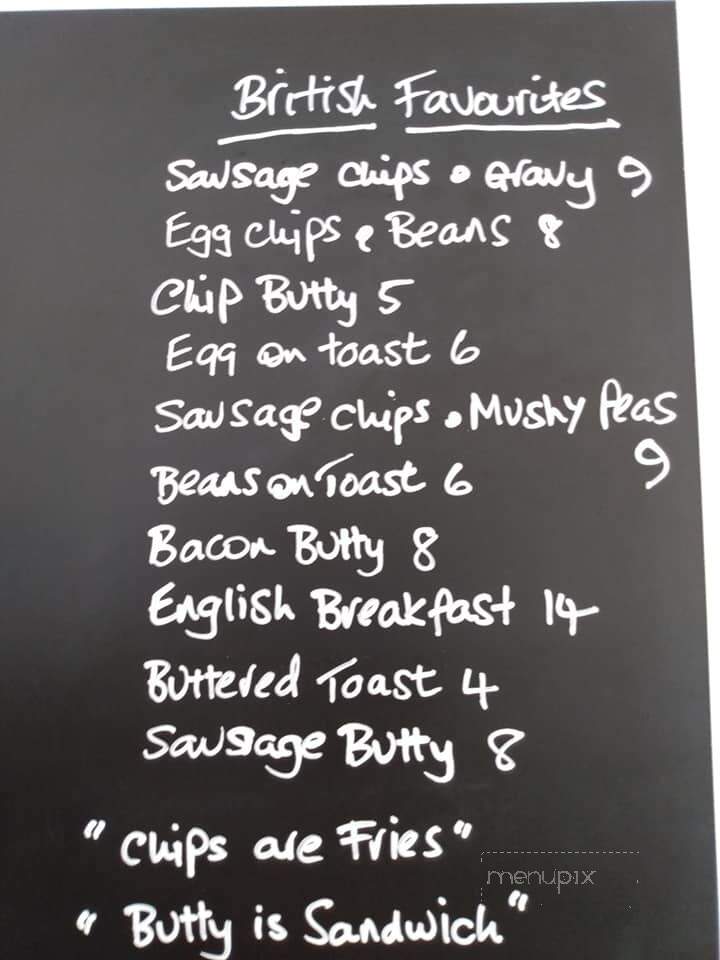 British Favourites
Sausage chips & Gravy 9
Egg chips & Beans 8
Chip Butty 5
Egg on toast 6
Sausage chips & Mushy Peas
9
Beans on Toast 6
Bacon Butty 8
English Breakfast 14
Buttered Toast 4
Sausage Butty 8
"Chips are Fries"
menupix
"Butty is Sandwich"